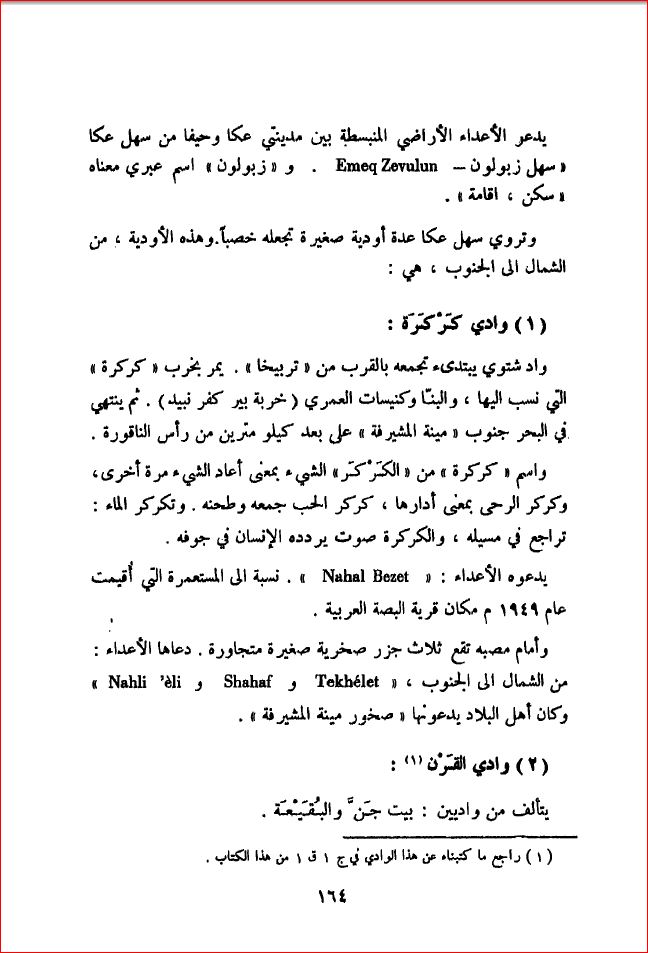 يدعو الأعداء الأراضي المنبسطة بين مدينتي عكا وحيفا من سهل عكا
« سهل زبولون – Emeq Zevulun . و « زبولون » اسم عبري معناه
« سكن ، اقامة » .
وتروي سهل عكا عدة أودية صغيرة تجعله خصباً.وهذه الأودية ، من
الشمال الى الجنوب ، هي :
( ١ ) وادي كَرْكَرَة :
واد شتوي يبتدىء تجمعه بالقرب من « تربيخا » . يمر بخرب « كركرة »
التي نسب اليها ، والبنّا وكنيسات العمري ( خربة بير كفر نبيد ) . ثم ينتهي
في البحر جنوب « مينة المشيرفة » على بعد كيلو مترين من رأس الناقورة .
واسم « كركرة » من « الكَرْكَر » الشيء بمعنى أعاد الشيء مرة أخرى،
وكركر الرحى بمعنى أدارها ، كركر الحب جمعه وطحنه . وتكركر الماء :
تراجع في مسيله ، والكركرة صوت يردده الإنسان في جوفه .
يدعوه الأعداء : « Nahal Bezet » . نسبة الى المستعمرة التي أُقيمت
عام ١٩٤٩ م مكان قرية البصة العربية .
وأمام مصبه تقع ثلاث جزر صخرية صغيرة متجاورة . دعاها الأعداء :
من الشمال الى الجنوب ، « Tekhélet و Shahaf و Nahli 'èli »
وكان أهل البلاد يدعونها « صخور مينة المشيرفة » .
( ٢ ) وادي القَرْن (١) :
يتألف من واديين : بيت جَنّ والبُقَيْعَة .
( ١ ) راجع ما كتبناه عن هذا الوادي في ج ١ ق ١ من هذا الكتاب .
١٦٤